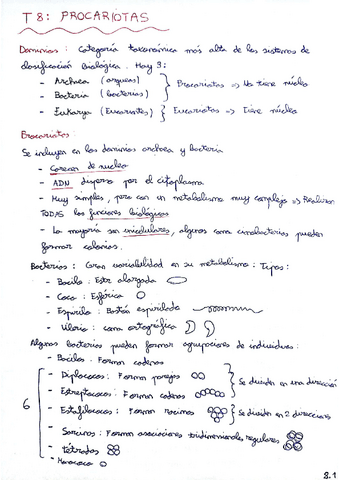 T 8: PROCARIOTAS
Dominios: Categoría taxonómica más alta de los sistemas de
clasificación biológica. Hay 3:
- Archaea (arqueas)
- Bacteria (bacterias)
Procariotas => No tiene núcleo
- Eukarya (Eucariontes) Eucariotas => Tiene núcleo
Procariotas:
Se incluyen en los dominios archaea y bacteria
- Carecen de nucleo
- ADN disperso por el citoplasma
- Muy simples, pero con un metabolismo muy complejo => Realizan
TODAS las funciones biológicas
- La mayoría son unicelulares, algunos como cianobacterias pueden
formar colonias.
Bacterias: Gran variabilidad en su metabolismo: Tipos:
- Bacilo: Estr alargada
- Coco: Esférica
- Espirilo: Bastón espirilado
- Vibrio: coma ortográfica
Algunas bacterias pueden formar agrupaciones de individuos:
- Bacilo: Forman cadenas
- Diplococos: Forman parejas
- Estreptococos: Forman cadenas
Se dividen en una dirección
6
- Estafilococos: Forman racimos Se dividen en 2 direcciones
- Sarcinas: Forman asociaciones tridimensionales regulares
- tétradas
- Monococo
8.1